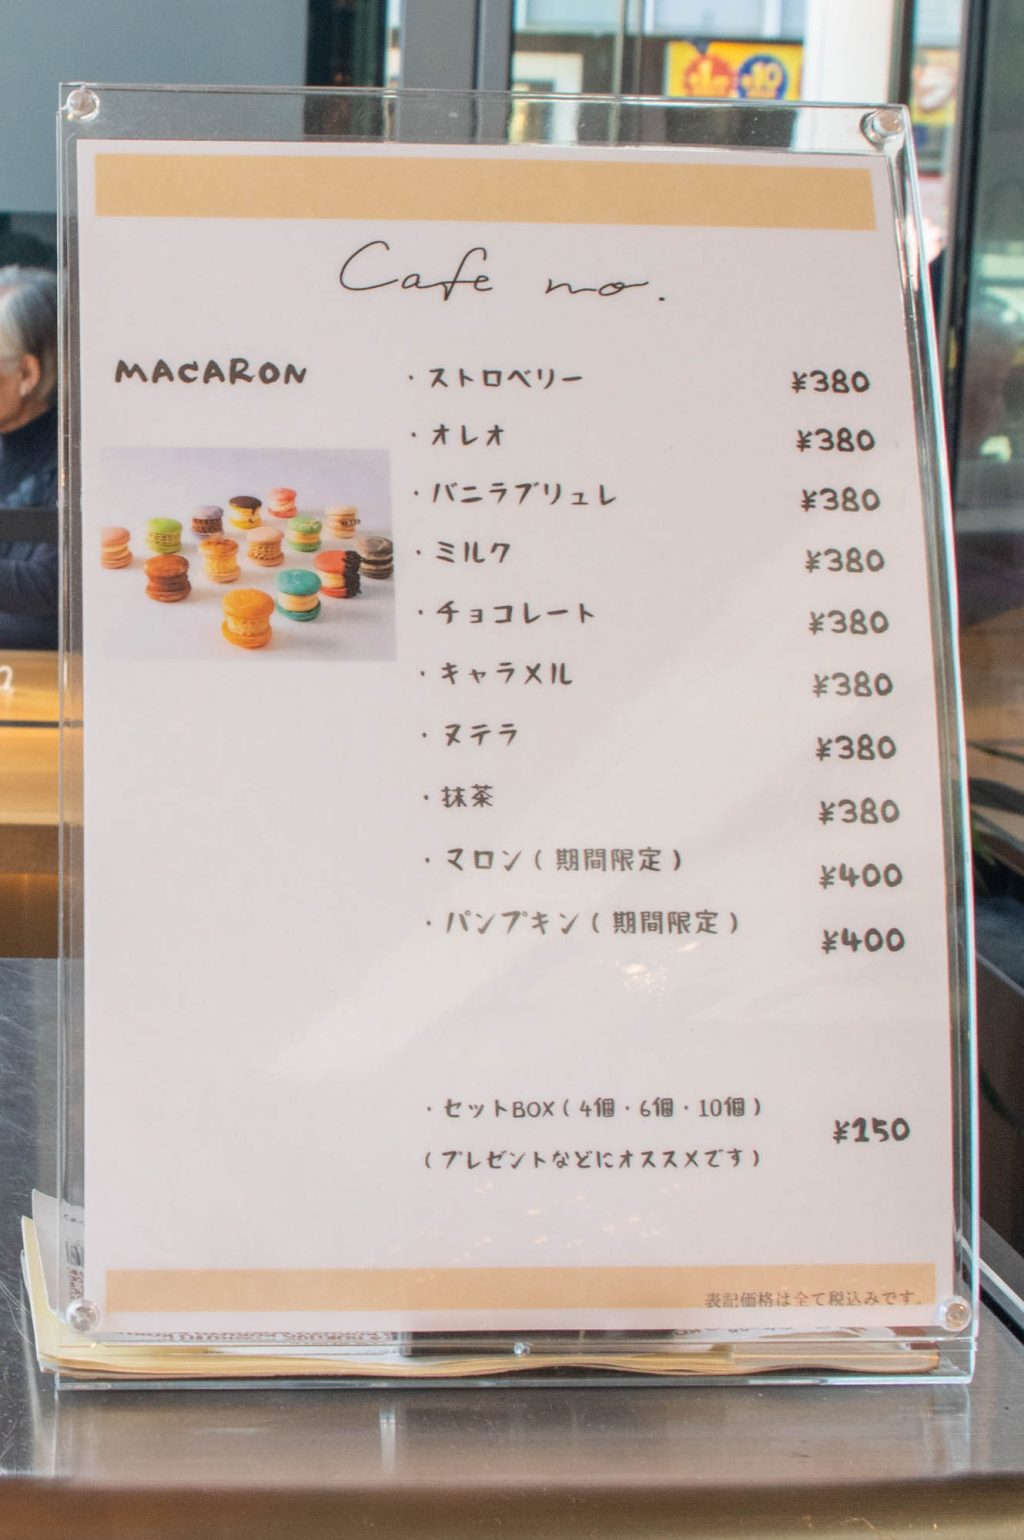 Cafe no.
MACARON
・ストロベリー ¥380
・オレオ ¥380
・バニラブリュレ ¥380
・ミルク ¥380
・チョコレート ¥380
・キャラメル ¥380
・ヌテラ ¥380
・抹茶 ¥380
・マロン(期間限定) ¥400
・パンプキン(期間限定) ¥400
・セットBOX(4個・6個・10個) ¥150
(プレゼントなどにオススメです)
表記価格は全て税込みです。